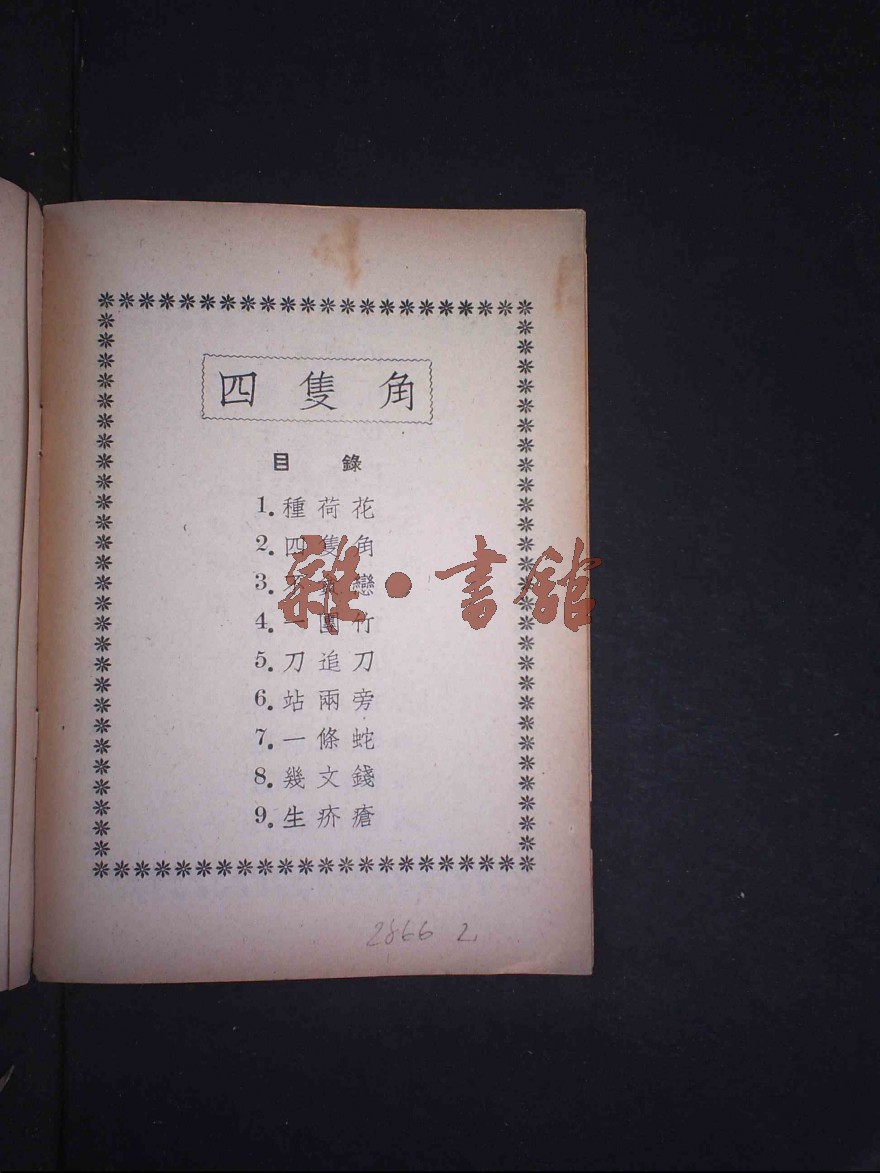 四隻角
目錄
1. 種荷花
2. 四隻角
3. 彎
4. 一團竹
5. 刀追刀
6. 站兩旁
7. 一條蛇
8. 幾文錢
9. 生疥瘡
雜·書館
2866 2